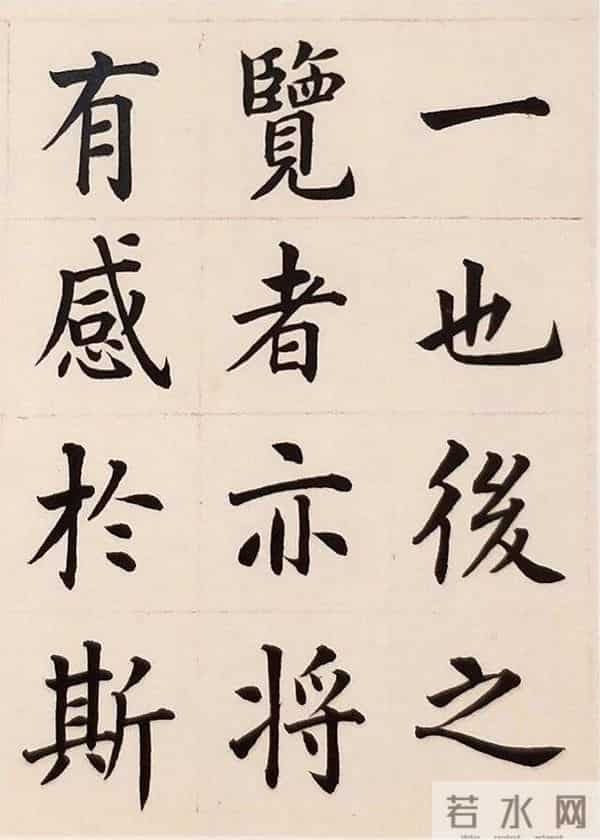 一也後之
覽者亦将
有感於斯
若水网